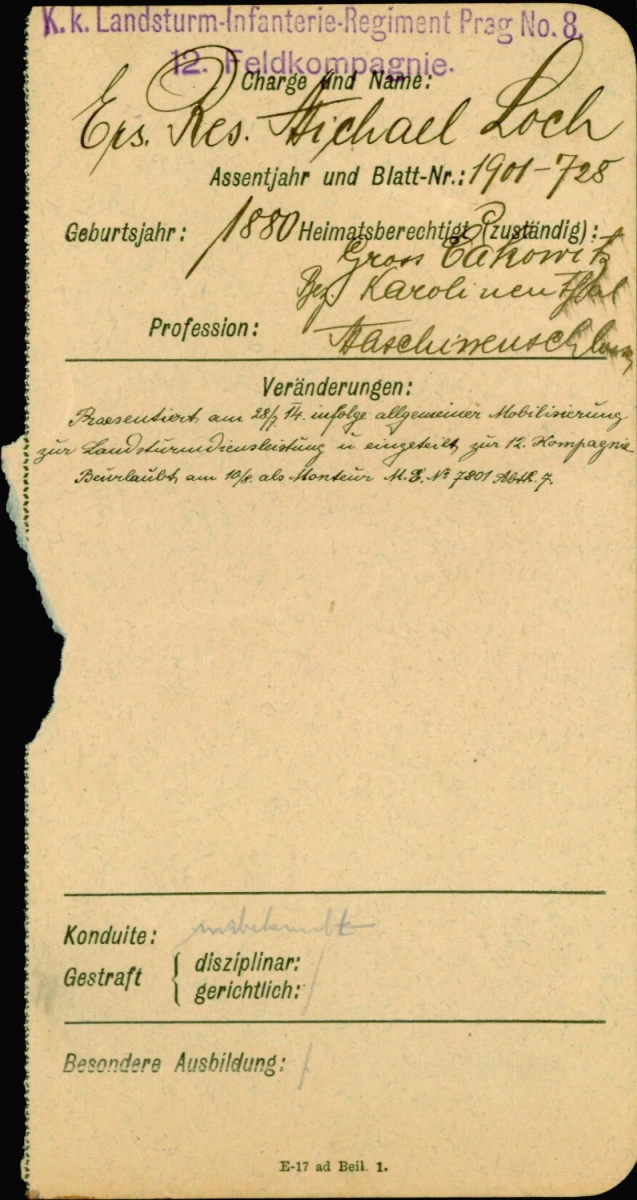 K. k. Landsturm-Infanterie-Regiment Prag No. 8.
12. Feldkompagnie.
Charge und Name:
Ers. Res. Michael Loch
Assentjahr und Blatt-Nr.: 1901-728
Geburtsjahr: 1880 Heimatsberechtigt (zuständig):
Gross Čakowitz
Bez. Karolinenthal
Profession: Maschinenschlosser
Veränderungen:
Praesentiert am 28/7 14. infolge allgemeiner Mobilisierung
zur Landsturmdiensleistung u eingeteilt zur 12. Kompagnie
Beurlaubt am 10/8. als Monteur M. E. No 7801 Abtl. 7.
Konduite: unbekannt
Gestraft { disziplinar: /
gerichtlich:
Besondere Ausbildung: /
E-17 ad Beil. 1.